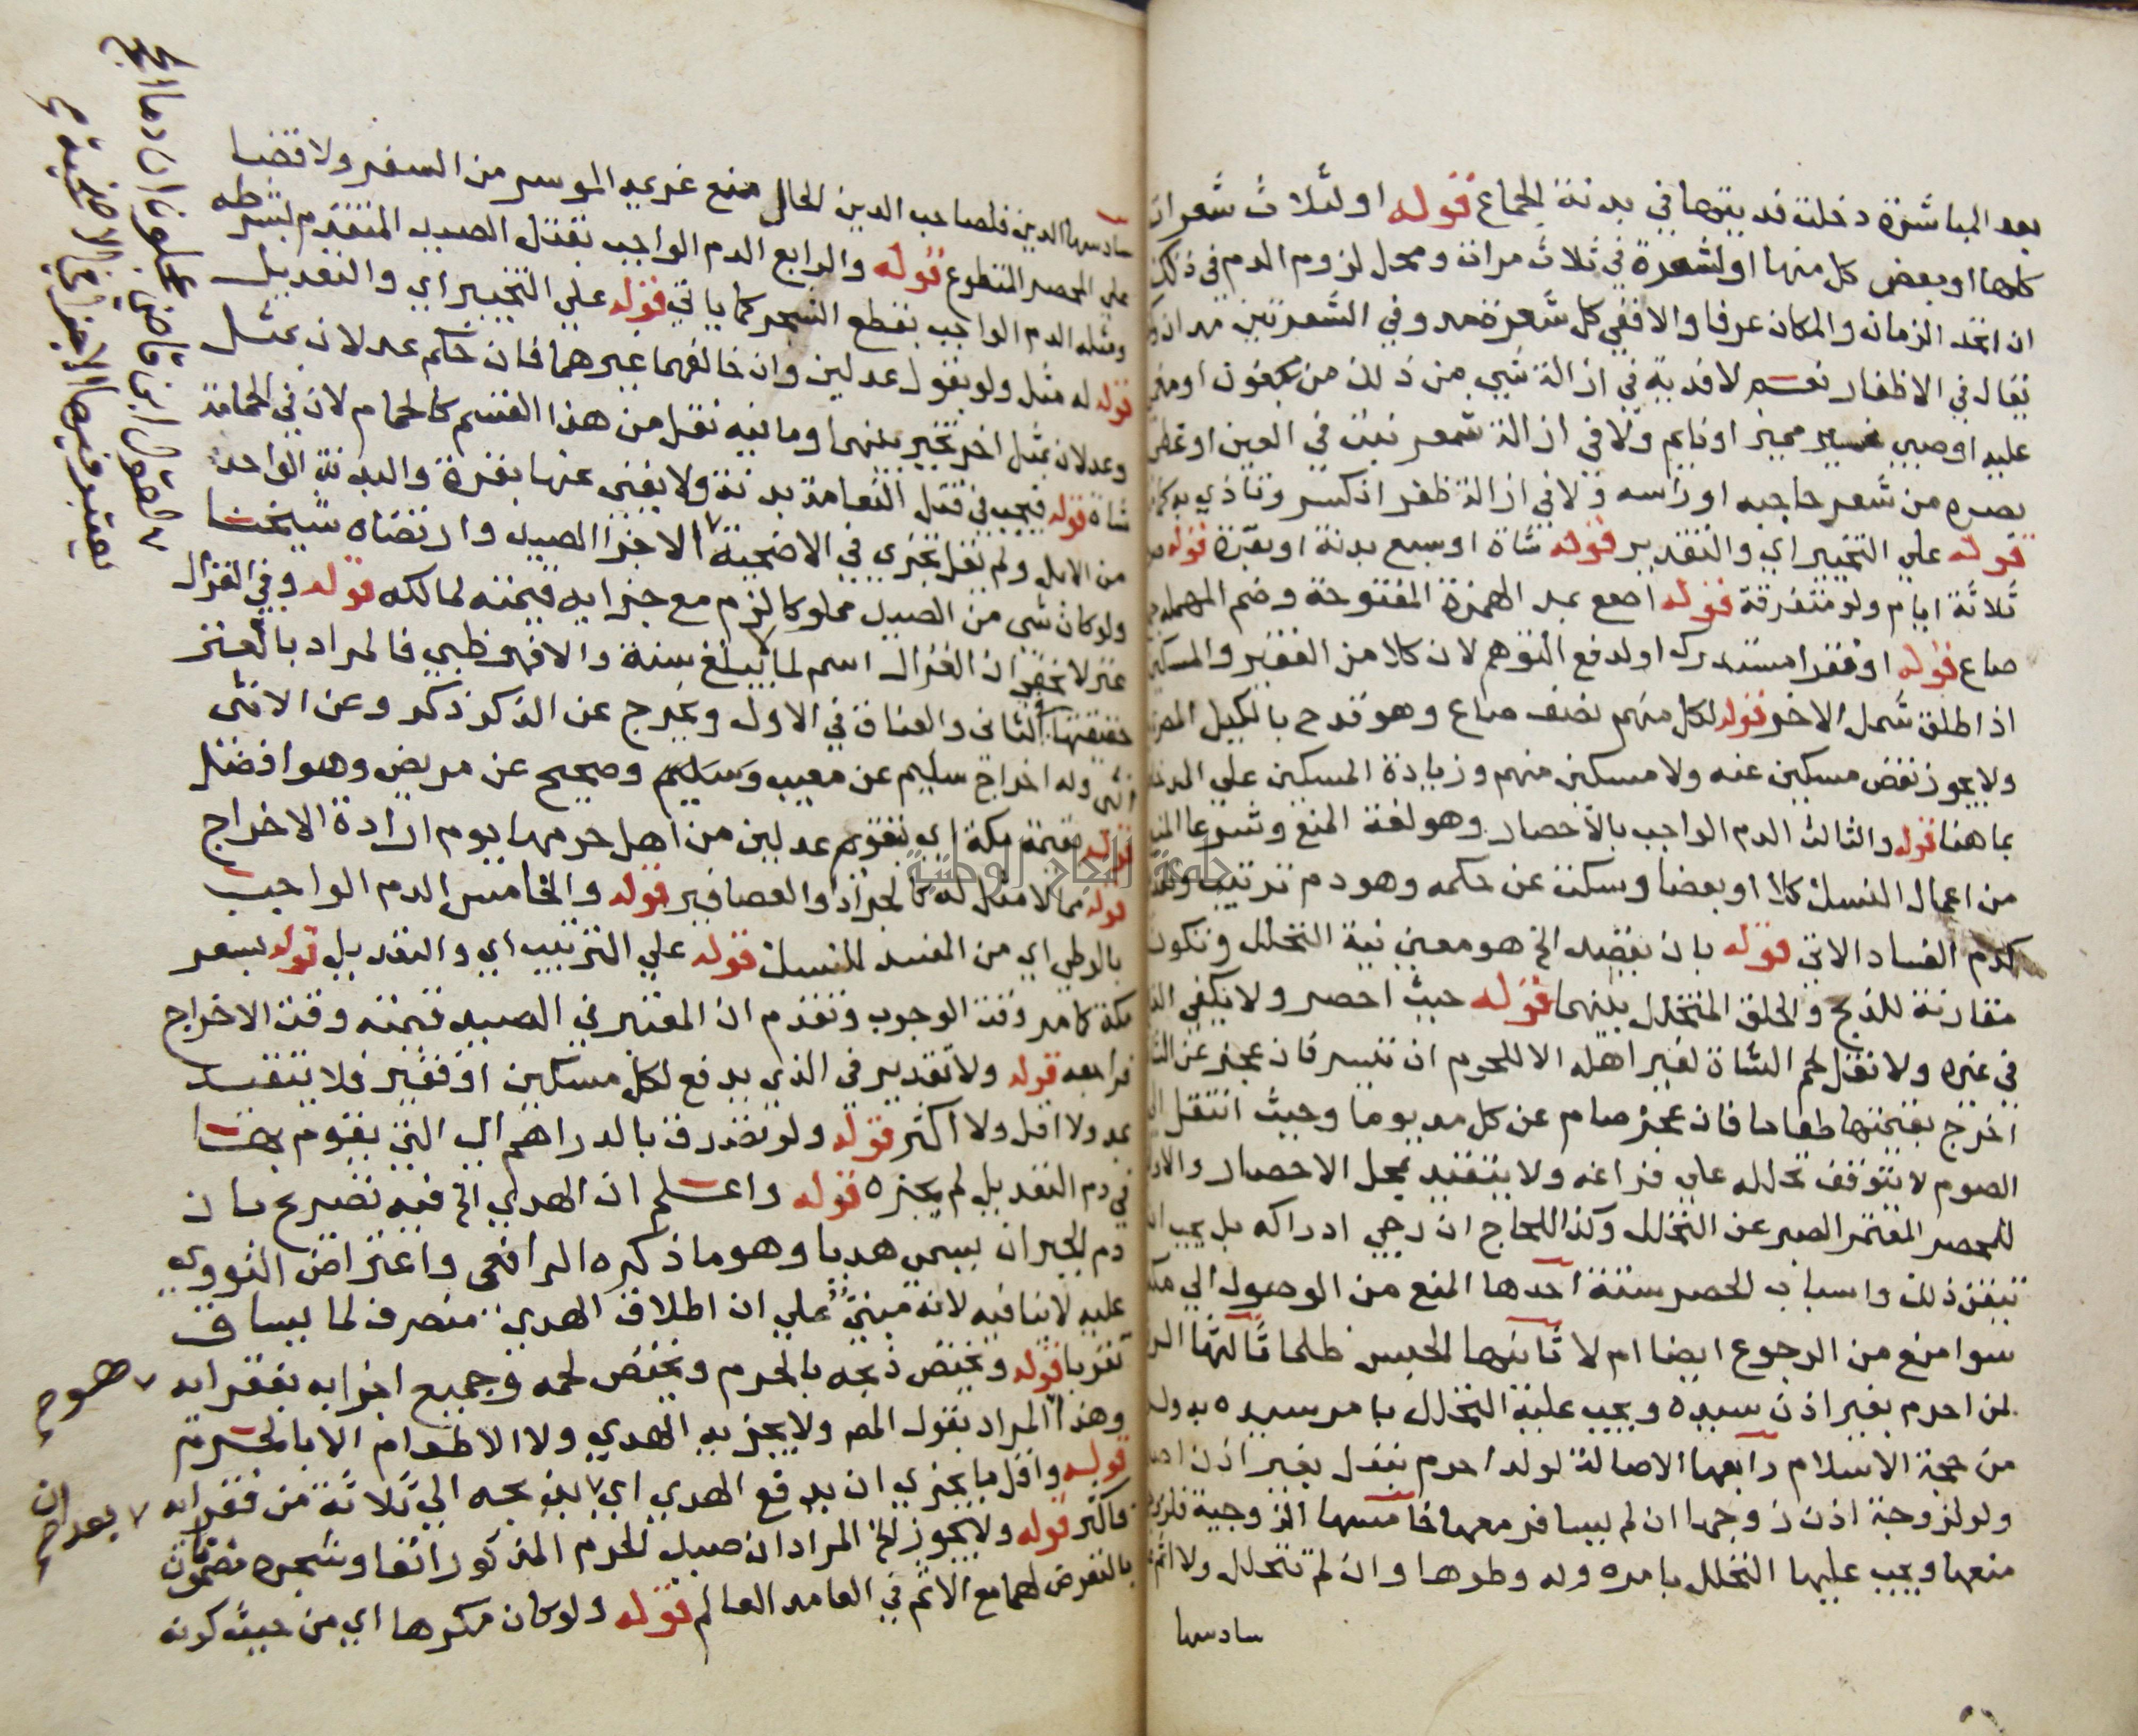 بعد المباشرة دخلت فديتها في بدنة الجماع قوله او لثلاث شعرات
كلها او بعض كل منها او لشعرة في ثلاث مرات ومحل لزوم الدم في ذلك
ان اتحد الزمان والمكان عرفا والا ففي كل شعرة مد وفي الشعرتين مدان
يقال في الاظفار نعم لا فدية في ازالة شي من ذلك من مجنون او مغمى
عليه او صبي غير مميز او نايم ولا في ازالة شعر نبت في العين او غطى
بصره من شعر حاجبه او راسه ولا في ازالة ظفر انكسر وتاذي به
قوله علي التخيير اي والتقدير قوله شاة او سبع بدنة او بقرة قوله
ثلاثة ايام ولو متفرقة قوله اصع بمد الهمزة المفتوحة وضم المهملة
صاع قوله او فقرا مستدرك او لدفع التوهم لان كلا من الفقير والمسكين
اذا اطلق شمل الاخر قوله لكل منهم نصف صاع وهو قدح بالكيل المصري
ولا يجوز نقص مسكين عنه ولا مسكين منهم وزيادة المسكين علي المد
بما هنا قوله والثالث الدم الواجب بالاحصار وهو لغة المنع وشرعا المنع
من اعمال النسك كلا او بعضا وسكت عن حكمه وهو دم ترتيب
كدم الفساد الاتي قوله بان يقصد الخ هو معين نية التحلل وتكون
مقارنة للذبح والحلق المتحلل بينهما قوله حيث احصر ولا يكفي
في غيره ولا نقل لحم الشاة لغير اهله الا للحرم ان تيسر فان عجز عن
اخرج بقيمتها طعاما فان عجز صام عن كل مد يوما وحيث انتقل الي
الصوم لا يتوقف تحلله علي فراغه ولا يتقيد بمحل الاحصار
للمحصر المعتمر الصبر عن التحلل وكذا للحاج ان رجي ادراكه بل يجب ان
تيقن ذلك واسباب الحصر ستة احدها المنع من الوصول الي مكة
سوا منع من الرجوع ايضا ام لا ثانيها الحبس ظلما ثالثها الرق
لمن احرم بغير اذن سيده ويجب عليه التحلل بامر سيده به
من حجة الاسلام رابعها الاصالة لولد احرم بنفل بغير اذن
ولو لزوجة اذن زوجها ان لم يسافر معها خامسها الزوجية
منعها ويجب عليها التحلل بامره وله وطوها وان لم تتحلل ولا اثم
سادسها
سادسها الدين فلصاحب الدين الحال منع غريمه الموسر من السفر ولا قضا
علي المحصر المتطوع قوله والرابع الدم الواجب بقتل الصيد المتقدم بشرطه
ومثله الدم الواجب بقطع الشجر كما ياتي قوله علي التخيير اي والتعديل
قوله له مثل ولو بقول عدلين وان خالفهما غيرهما فان حكم عدلان بمثل
وعدلان بمثل اخر تخير بينهما وما فيه نقل من هذا القسم كالحمام لان في الحمامة
شاة قوله فيجب في قتل النعامة بدنة ولا يغني عنها بقرة والبدنة الواحد
من الابل ولم نقل تجزي في الاضحية الا جزا الصيد وارتضاه شيخنا
ولو كان شي من الصيد مملوكا لزم مع جزايه قيمته لمالكه قوله وفي الغزال
عنز لا يخفى ان الغزال اسم لما لم يبلغ سنة والا فهو ظبي فالمراد بالعنز
حقيقتها كالثاني والعناق في الاول ويخرج عن الذكر ذكر وعن الانثى
انثى وله اخراج سليم عن معيب وسليم وصحيح عن مريض وهو افضل
قوله بقيمة مكة اي بتقويم عدلين من اهل حرمها يوم ارادة الاخراج
قوله مما لا مثل له كالجراد والعصافير قوله والخامس الدم الواجب
بالوطي اي من المفسد للنسك قوله علي الترتيب اي والتعديل قوله بسعر
مكة كامد وقت الوجوب وتقدم ان المعتبر في الصيد قيمته وقت الاخراج
فراجعه قوله ولا تقدير في الذي يدفع لكل مسكين او فقير فلا يتقيد
بمد ولا اقل ولا اكثر قوله ولو تصدق بالدراهم اي التي يقوم بها
في دم التعديل لم يجزه قوله واعلم ان الهدي الخ فيه تصريح بان
دم الجبران يسمى هديا وهو ما ذكره الرافعي واعتراض النووي
عليه لا ينافيه لانه مبني علي ان اطلاق الهدي منصرف لما يساق
تقربا قوله ويختص ذبحه بالحرم ويختص لحمه وجميع اجزايه بفقرايه
وهذا المراد بقول المص ولا يجزيه الهدي ولا الاطعام الا بالحرم
قوله واقل ما يجزي ان يدفع الهدي اي بذبحه الي ثلاثة من فقرايه
فاكثر قوله ولا يجوز الخ المراد ان صيد الحرم المذكور انفا وشجره مضمون
بالتعرض لهما مع الاثم في العامد العالم قوله ولو كان مكرها اي من حيث كونه